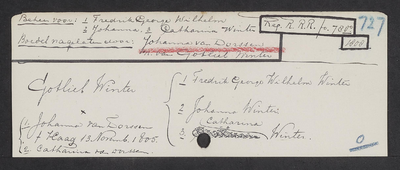 Beheer voor: 1 Fredrik George Wilhelm
2 Johanna. 3 Catharina Winter
Boedel nagelaten door: Johanna van Dorssen
Gotlieb Winter
Reg. R.R.R. fo. 788
1808
727
Gotlieb Winter
1 Fredrik George Wilhelm Winter
2 Johanna Winter
Catharina
3 Winter.
1. Johanna van Dorssen
† Haag 13 Novemb. 1808.
2. Catharina van Dorssen.
0